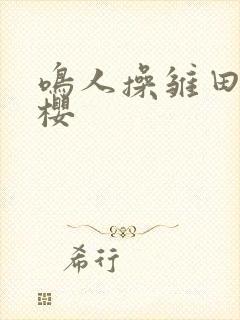 鳴人操雏田
櫻
希行